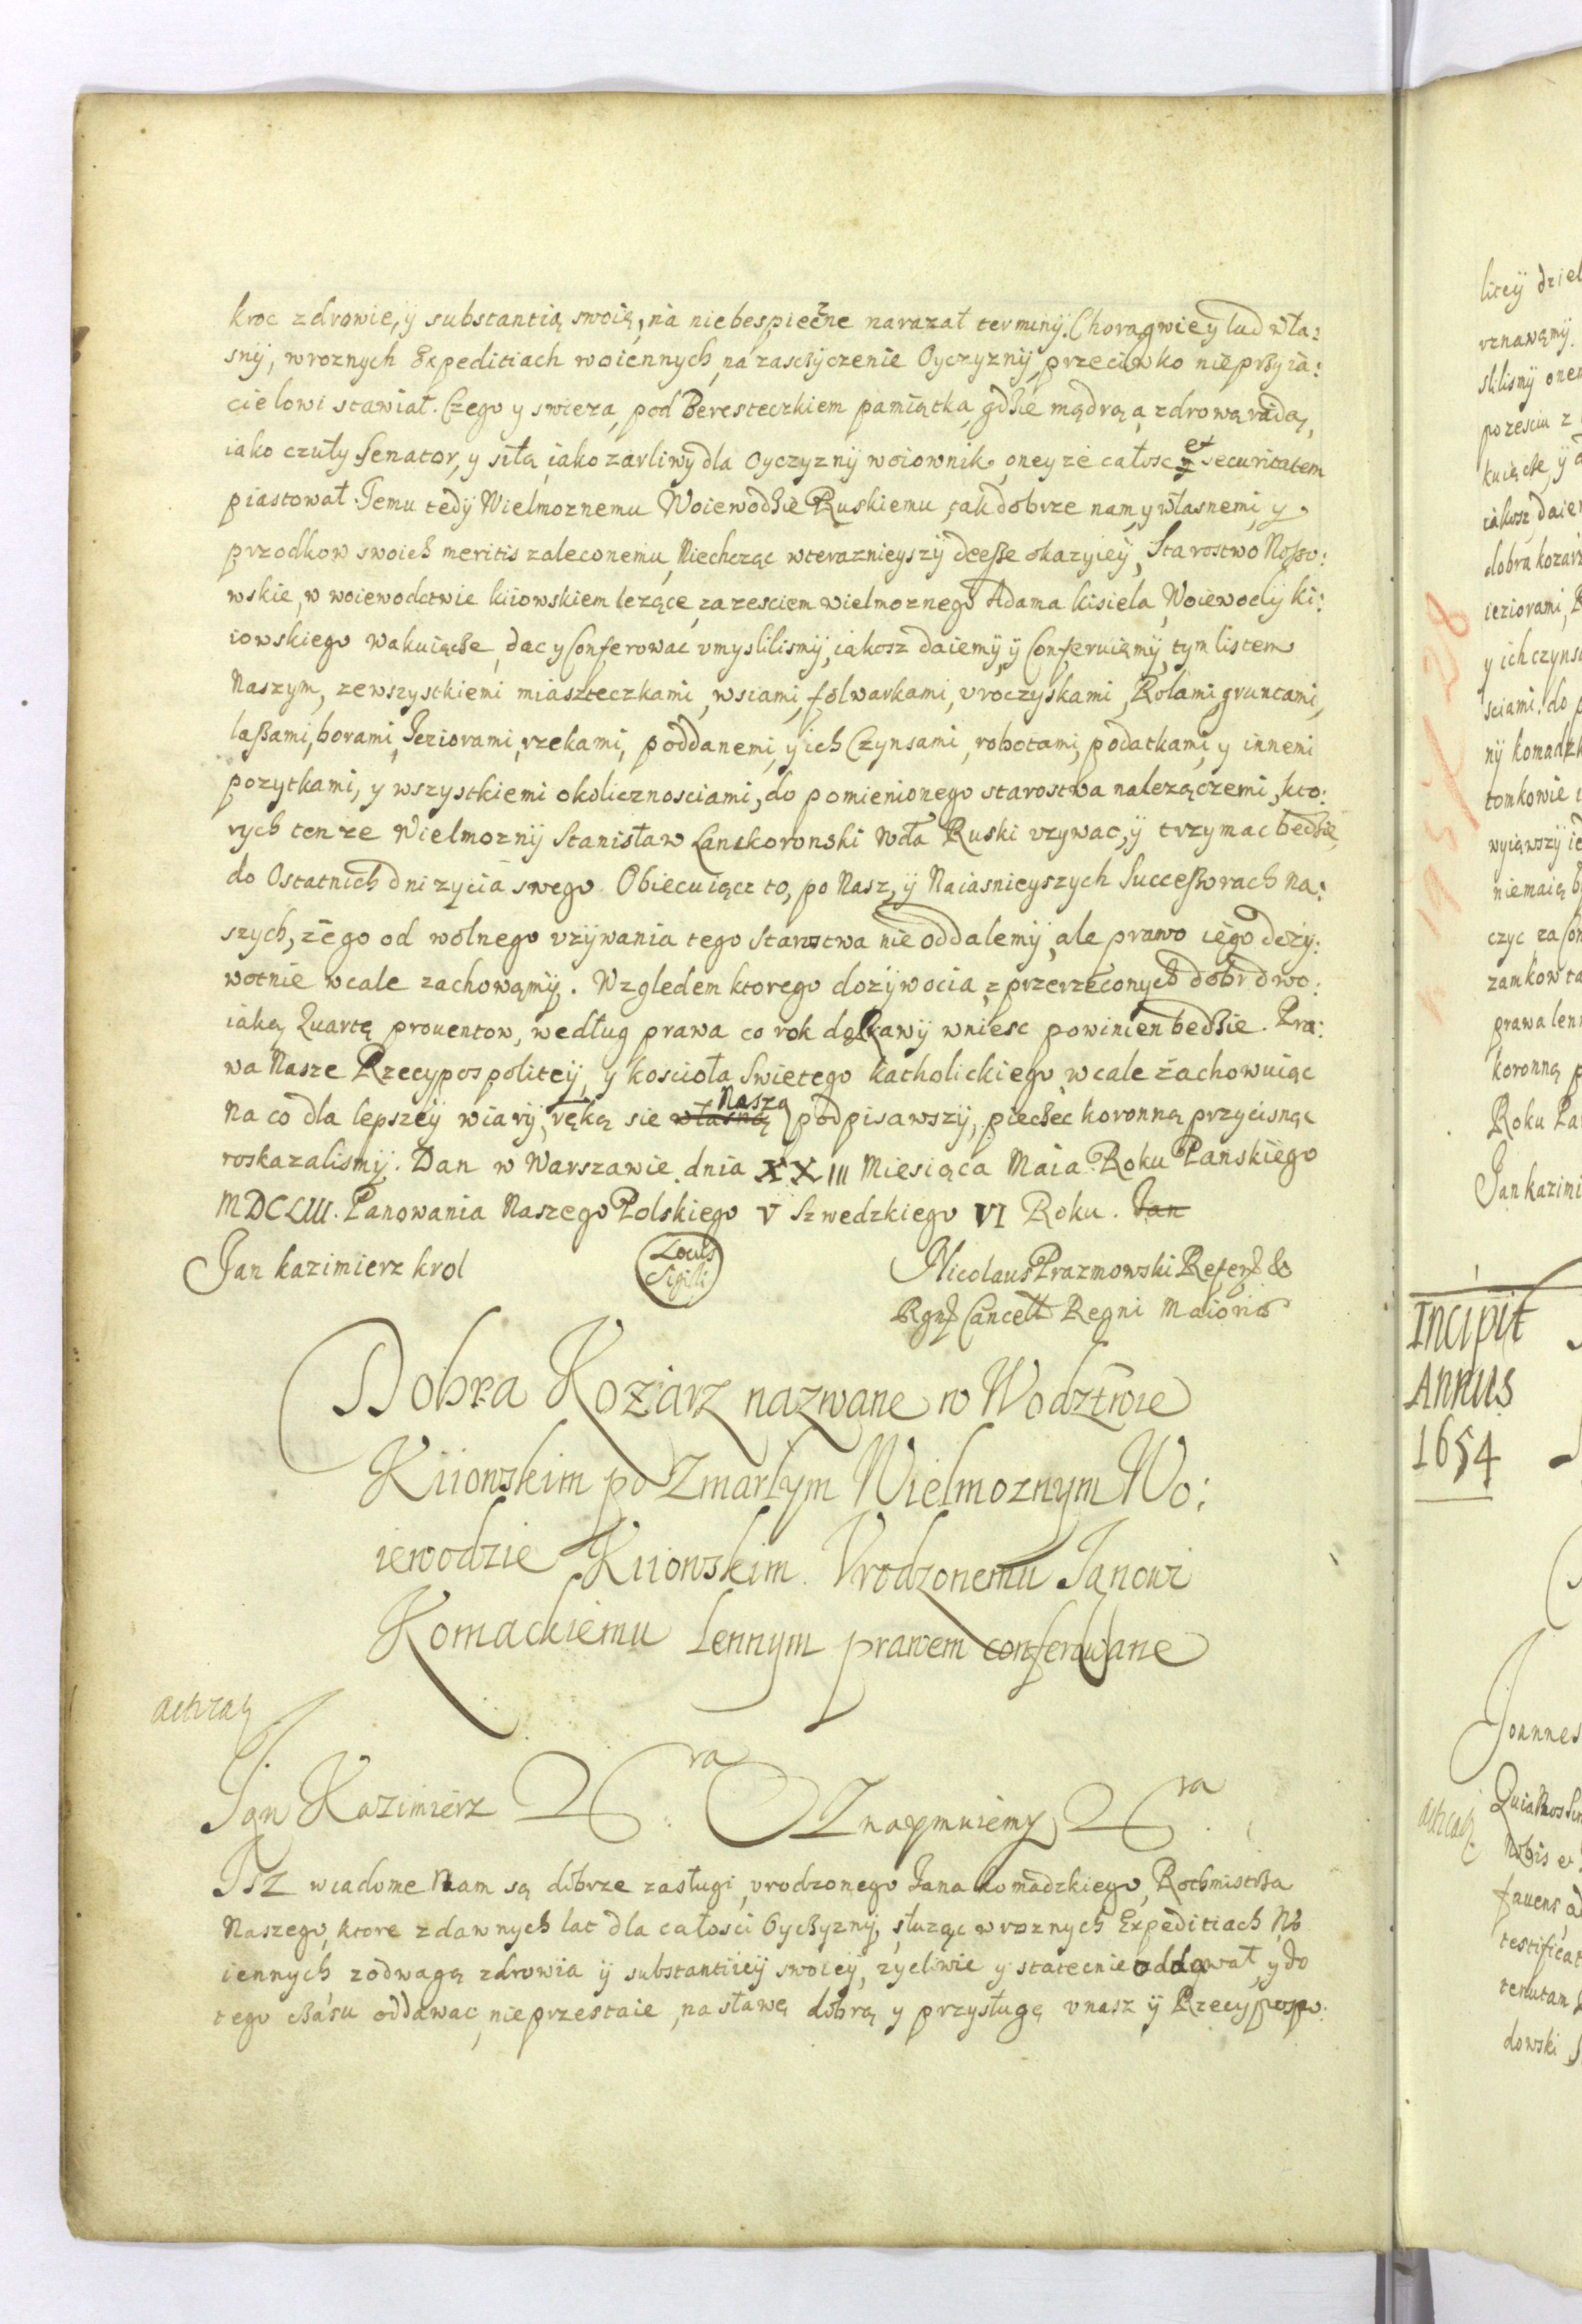 kroc zdrowie, y substantią swoię, na niebespieczne narazał terminÿ. Chorągwie y lud wła:
snÿ, w roznych Expeditiach woiennych, na zasczyczenie Oyczyznÿ, przeciwko nieprzyia:
cielowi stawiał. Czego y swieza, pod Beresteczkiem pamiątka, gdzie mądrą a zdrową radą,
iako czuły Senator, y siłą iako zarliwy dla Oyczyznÿ woiownik, oney ze całosc et securitatem
piastował. Temu tedÿ Wielmoznemu Woiewodzie Ruskiemu, tak dobrze nam, y własnemi, y
przodkow swoich meritis zaleconemu, Niechcząc w teraznieyszÿ deesse okazyieÿ, Starostwo Nosso:
wskie, w woiewodctwie kiiowskiem lezące, za zesciem wielmoznego Adama kisiela, Woiewodÿ ki:
iowskiego wakuiącze, dac y Conferowac vmyslilismÿ, iakosz daiemÿ, ÿ Conferuiemÿ, tym listem
Naszym, ze wszystkiemi miaszteczkami, wsiami, folwarkami, vroczyskami, Rolami, gruntami,
lassami, borami, Jeziorami, rzekami, poddanemi, y ich Czynsami, robotami, podatkami, y innemi
pozytkami, y wszystkiemi okolicznosciami, do pomienionego starostwa nalezączemi, kto:
rych ten ze Wielmoznÿ Stanisław Lanckoronski Wda Ruski vzywac, ÿ trzymac bedzie,
do Ostatnich dni zycia swego. Obiecuiącz to, po Nasz, ÿ Naiasnieyszych Successorach na:
szych, ze go od wolnego vzÿwania tego Starostwa nie oddalemÿ, ale prawo iego dozy:
wotnie wcale zachowamÿ. Wzgledem ktorego dozywocia, z przerzeconych dobr dwo:
iaką Quartę prouentow, według prawa co rok do Rawÿ wniesc powinien bedzie. Pra:
wa Nasze Rzecypospoliteÿ, y koscioła Swietego katholickiego, wcale zachowuiąc
Na co dla lepszeÿ wiarÿ, ręką sie własną Naszą podpisawszÿ, pieczec koronną przycisnąc
roskazalismÿ. Dan w Warszawie dnia XXIII Miesiąca Maia Roku Pańskiego
MDCLIII. Panowania Naszego Polskiego V Szwedzkiego VI Roku. Jan
Jan kazimierz krol
Locus Sigilli
Nicolaus Prazmowski Refer. &
Rgns Cancell. Regni Maioris
Dobra Koziarz nazwane w Wodztwie
Kiiowskim po Zmarlym Wielmoznym Wo:
iewodzie Kiiowskim. Vrodzonemu Janowi
Komackiemu Lennym prawem conferowane
Jan Kazimierz &ra. Oznaymuiemy &ra.
Isz wiadome Nam są dobrze zasługi, vrodzonego Jana komadzkiego, Rothmistrza
Naszego, ktore z dawnych lat dla całosci Oyczyznÿ, słuząc w roznych Expeditiach Wo
iennych z odwagą zdrowia ÿ substantiieÿ swoieÿ, zyczliwie y statecnie oddawał, y do
tego czasu oddawac, nieprzestaie, na sławę dobrą y przysługę v nasz ÿ Rzecypospo:
liceÿ dziel
vznawamÿ.
slilismÿ onem
po zesciu z
kuiącze, ÿ d
iakosz daiem
dobra koziarz
ieziorami, R
y ich czynsa
sciami, do p
nÿ komadzk
tomkowie i
wyiąwszÿ ie
niemaią b
czyc za
zamkow ta
prawa lenn
koronną p
Roku Pa
Jan kazimi
Incipit
Annus
1654
Joannes
Quia Nos
Nobis e
fauens ad
testificat
tenutam
dowski